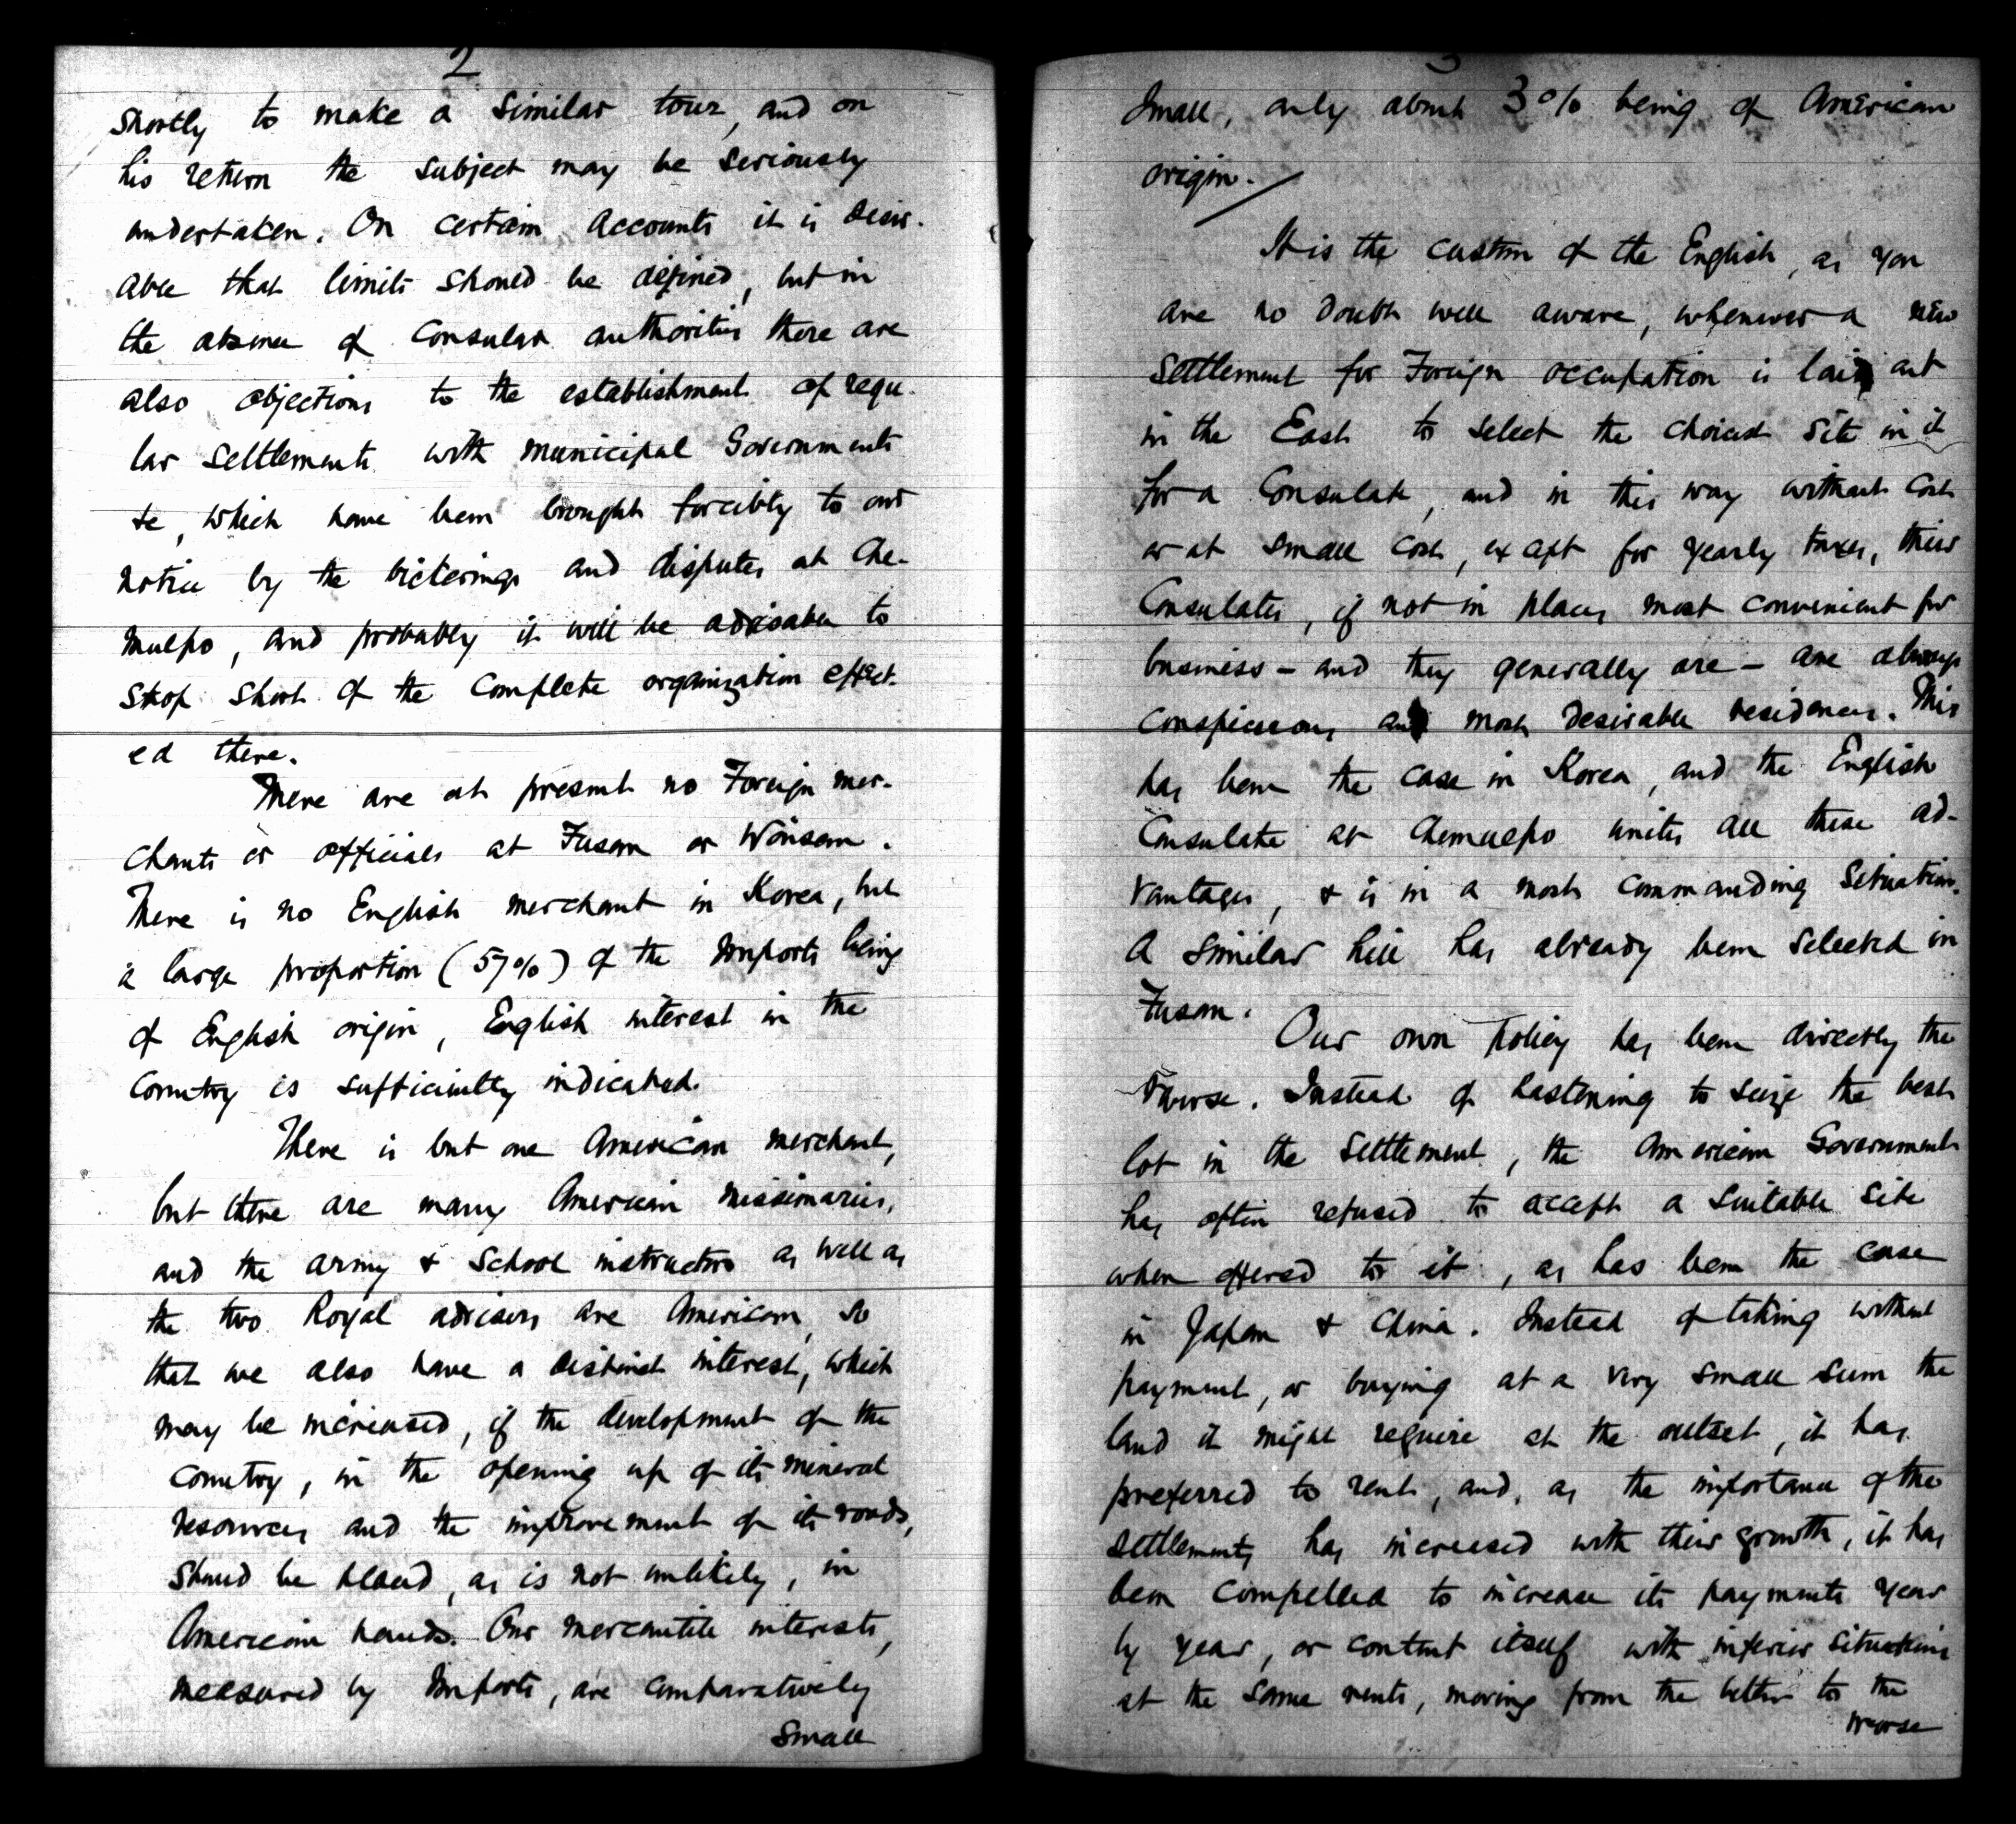 2
shortly to make a similar tour, and on
his return the subject may be seriously
undertaken. On certain accounts it is desir-
able that limits should be defined, but in
the absence of Consular authorities there are
also objections to the establishment of regu-
lar settlements with municipal Governments
&c, which have been brought forcibly to our
notice by the bickerings and disputes at Che-
mulpo, and probably it will be advisable to
stop short of the complete organization effect-
ed there.
There are at present no Foreign mer-
chants or officials at Fusan or Wönsan.
There is no English merchant in Korea, but
a large proportion (57%) of the Imports being
of English origin, English interest in the
country is sufficiently indicated.
There is but one American merchant,
but there are many American missionaries,
and the army & School instructors as well as
the two Royal advisers are American, so
that we also have a distinct interest, which
may be increased, if the development of the
country, in the opening up of its mineral
resources and the improvement of its roads,
should be placed, as is not unlikely, in
American hands. Our mercantile interests,
measured by Imports, are comparatively
small
3
small, only about 3% being of American
origin.
It is the custom of the English, as you
are no doubt well aware, whenever a new
Settlement for Foreign occupation is laid out
in the East to select the choicest site in it
for a Consulate, and in this way without cost
or at small cost, except for yearly taxes, their
Consulates, if not in places most convenient for
business - and they generally are - are always
conspicuous and most desirable residences. This
has been the case in Korea, and the English
Consulate at Chemulpo unites all these ad-
vantages, & is in a most commanding situation.
A similar hill has already been selected in
Fusan.
Our own policy has been directly the
reverse. Instead of hastening to seize the best
lot in the Settlement, the American Government
has often refused to accept a suitable site
when offered to it, as has been the case
in Japan & China. Instead of taking without
payment, or buying at a very small sum the
land it might require at the outset, it has
preferred to rent, and, as the importance of the
settlements has increased with their growth, it has
been compelled to increase its payments year
by year, or content itself with inferior situations
at the same rents, moving from the better to the
worse